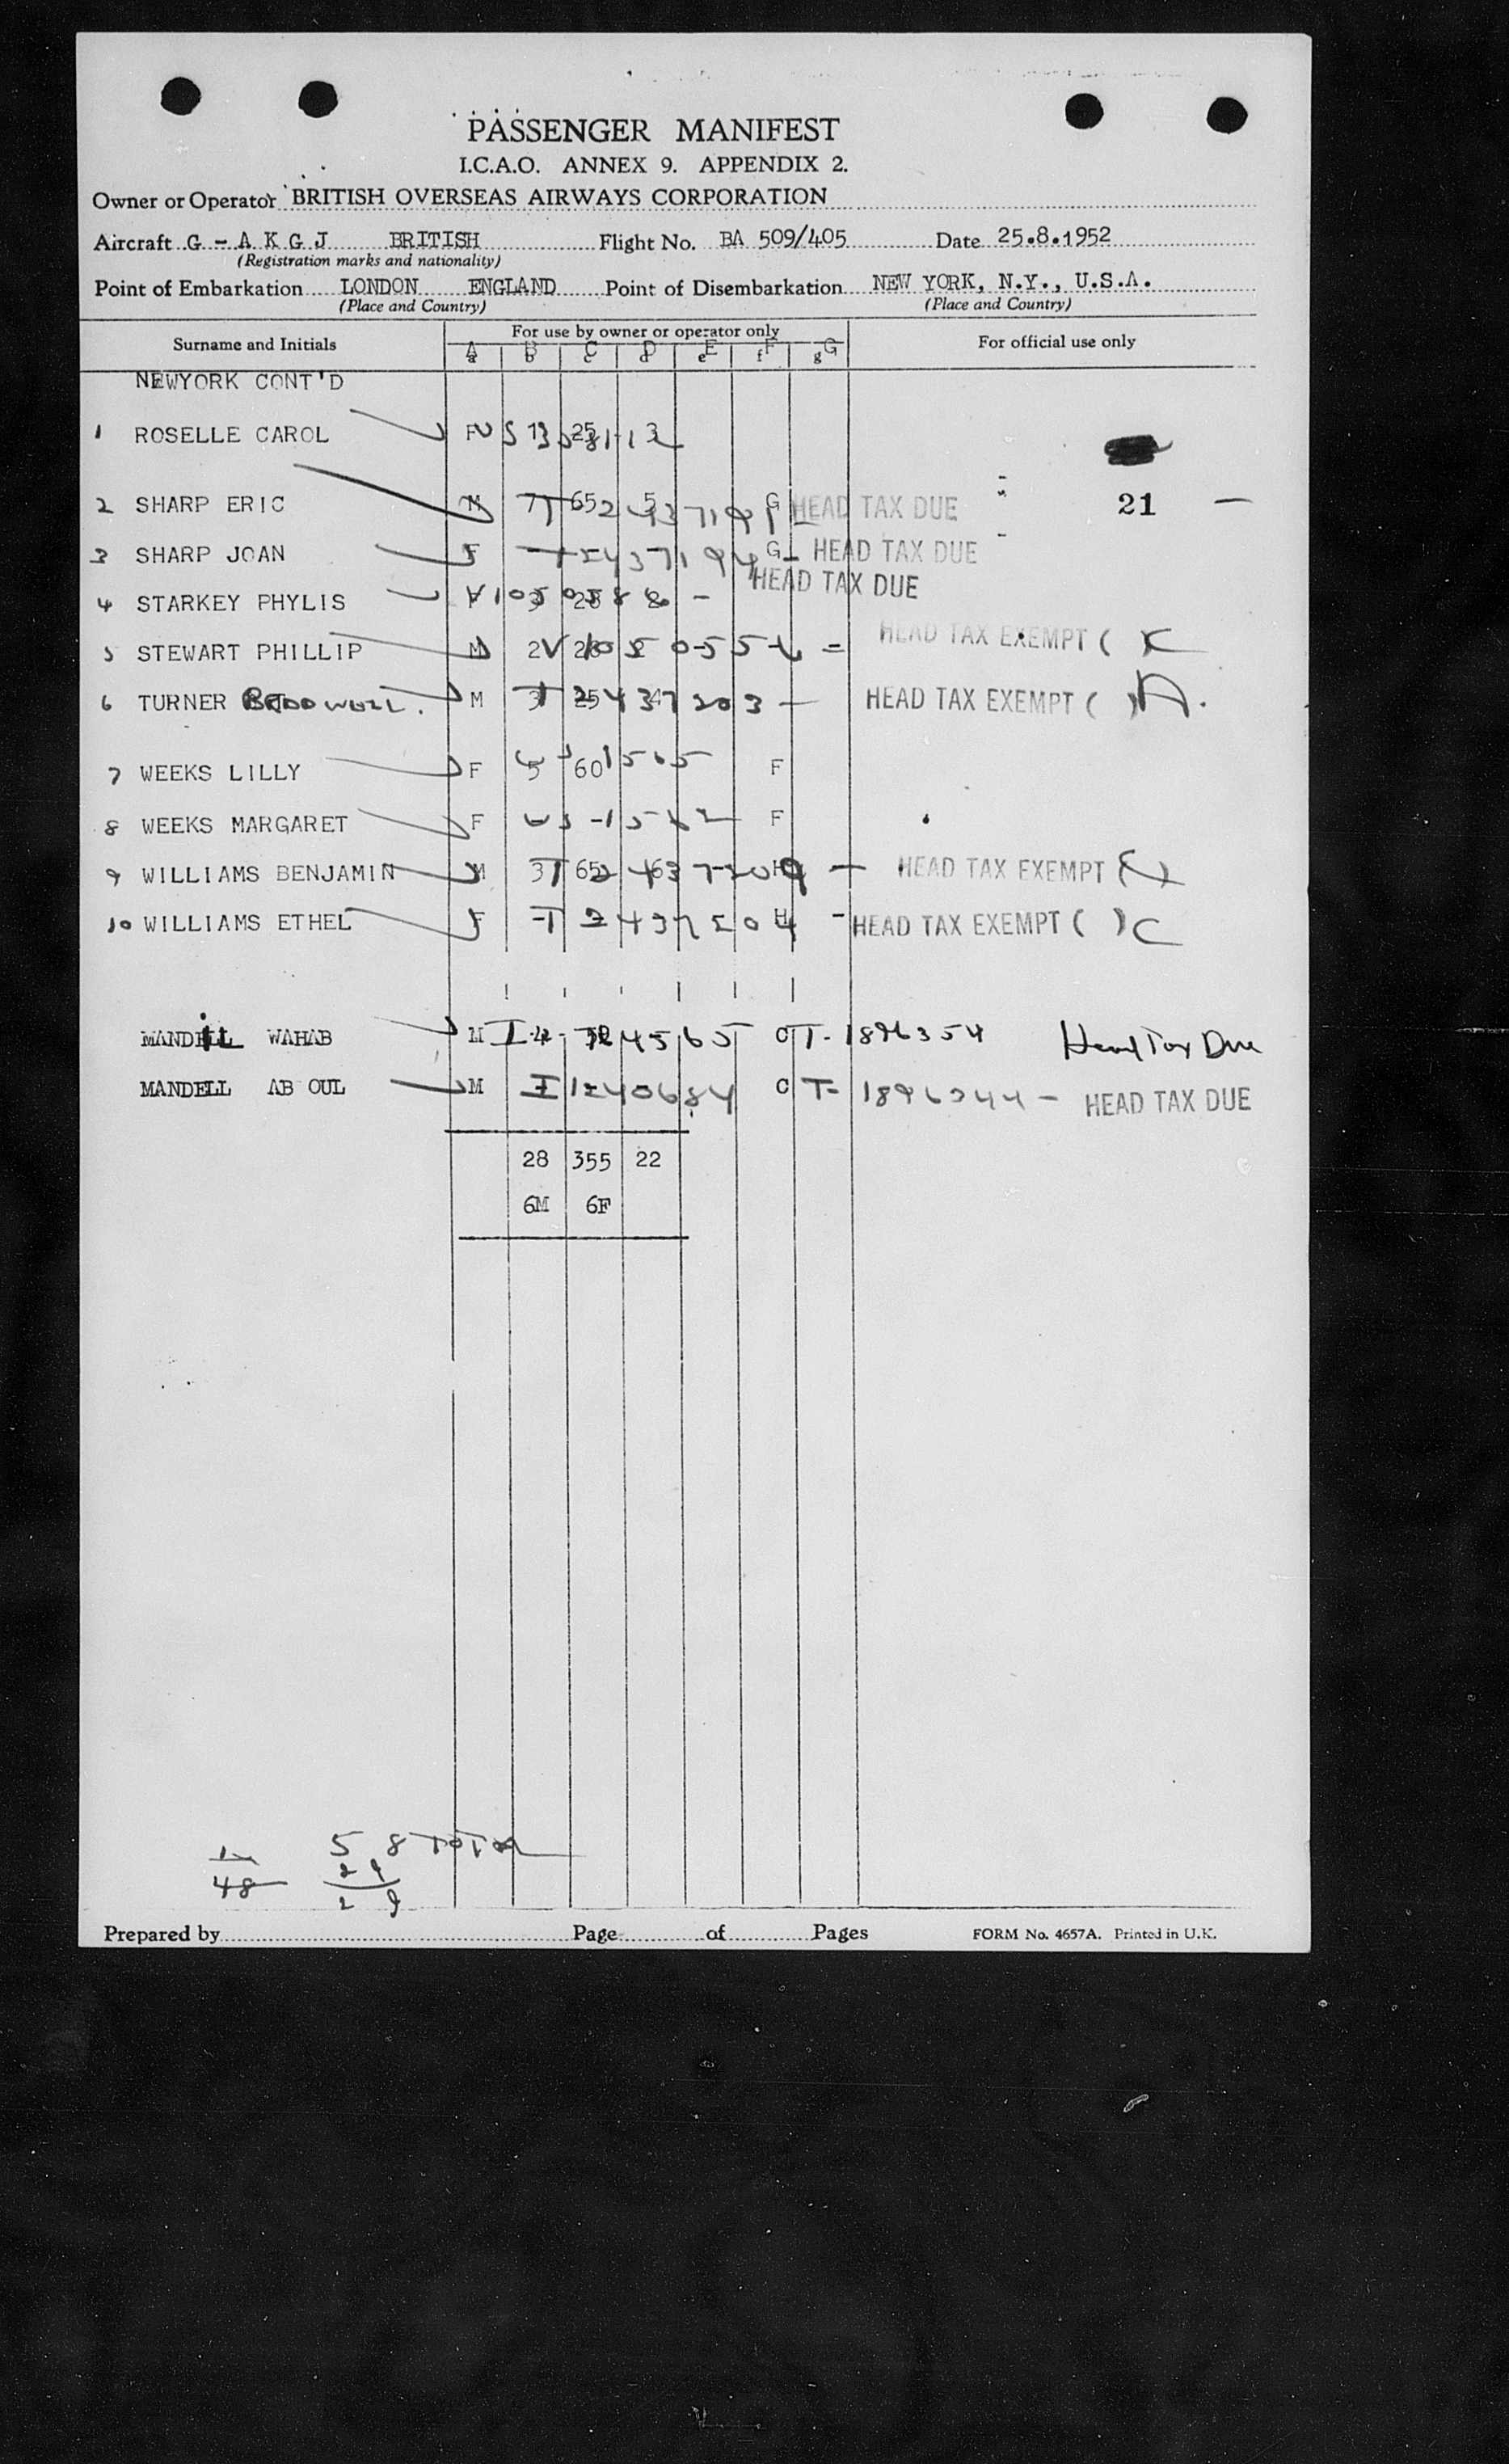 PASSENGER MANIFEST
I.C.A.O. ANNEX 9. APPENDIX 2.
Owner or Operator BRITISH OVERSEAS AIRWAYS CORPORATION
Aircraft G - A K G J BRITISH Flight No. BA 509/405 Date 25.8.1952
(Registration marks and nationality)
Point of Embarkation LONDON ENGLAND Point of Disembarkation NEW YORK, N.Y., U.S.A.
(Place and Country) (Place and Country)
Surname and Initials For use by owner or operator only For official use only
A B C D E F G
a b c d e f g
NEWYORK CONT'D
1 ROSELLE CAROL F 13 25 3
2 SHARP ERIC M 7 65 5 G HEAD TAX DUE 21 —
3 SHARP JOAN F T2437194 G HEAD TAX DUE
4 STARKEY PHYLIS HEAD TAX DUE
5 STEWART PHILLIP M HEAD TAX EXEMPT (
6 TURNER M T2437203 — HEAD TAX EXEMPT ( ) A.
7 WEEKS LILLY F 5 60 F
8 WEEKS MARGARET F F
9 WILLIAMS BENJAMIN M 3 65 6 H — HEAD TAX EXEMPT (
10 WILLIAMS ETHEL F T 2437204 H - HEAD TAX EXEMPT ( ) C
WAHAB M C T-1896354 Head Tax Due
MANDELL AB OUL M I 1240684 C T- — HEAD TAX DUE
28 355 22
6M 6F
58 Total
48 29
29
Prepared by Page of Pages FORM No. 4657A. Printed in U.K.